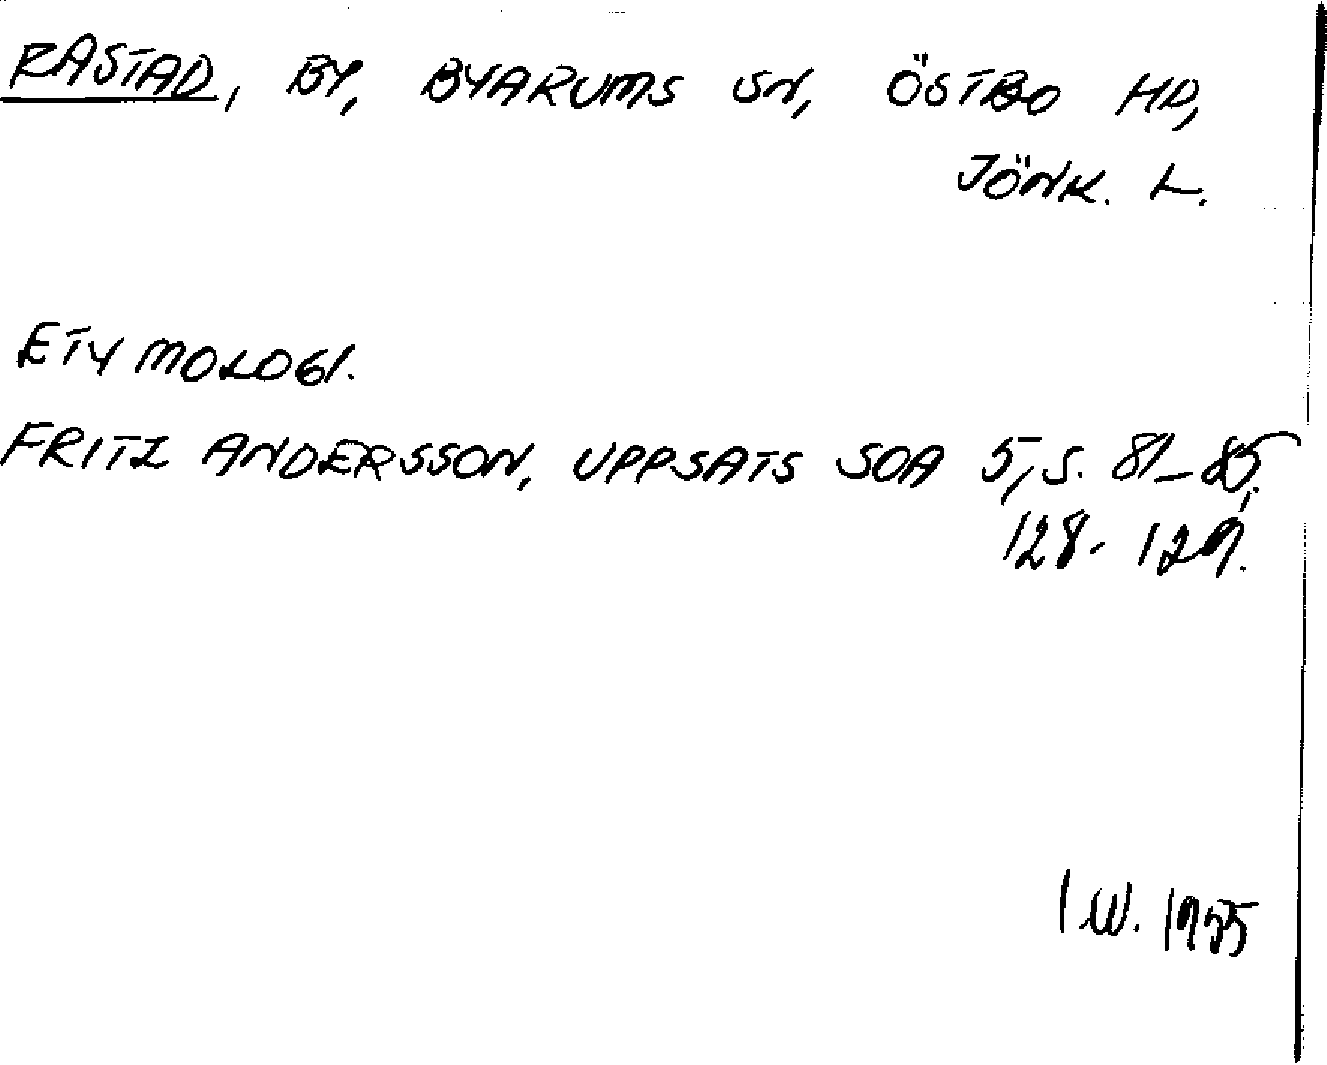 RASTAD, BY, BYARUMS SN, ÖSTBO HD,
JÖNK. L.
ETYMOLOGI.
FRITZ ANDERSSON, UPPSATS SOA 5, S. 81-85;
128-129.
I.W. 1955